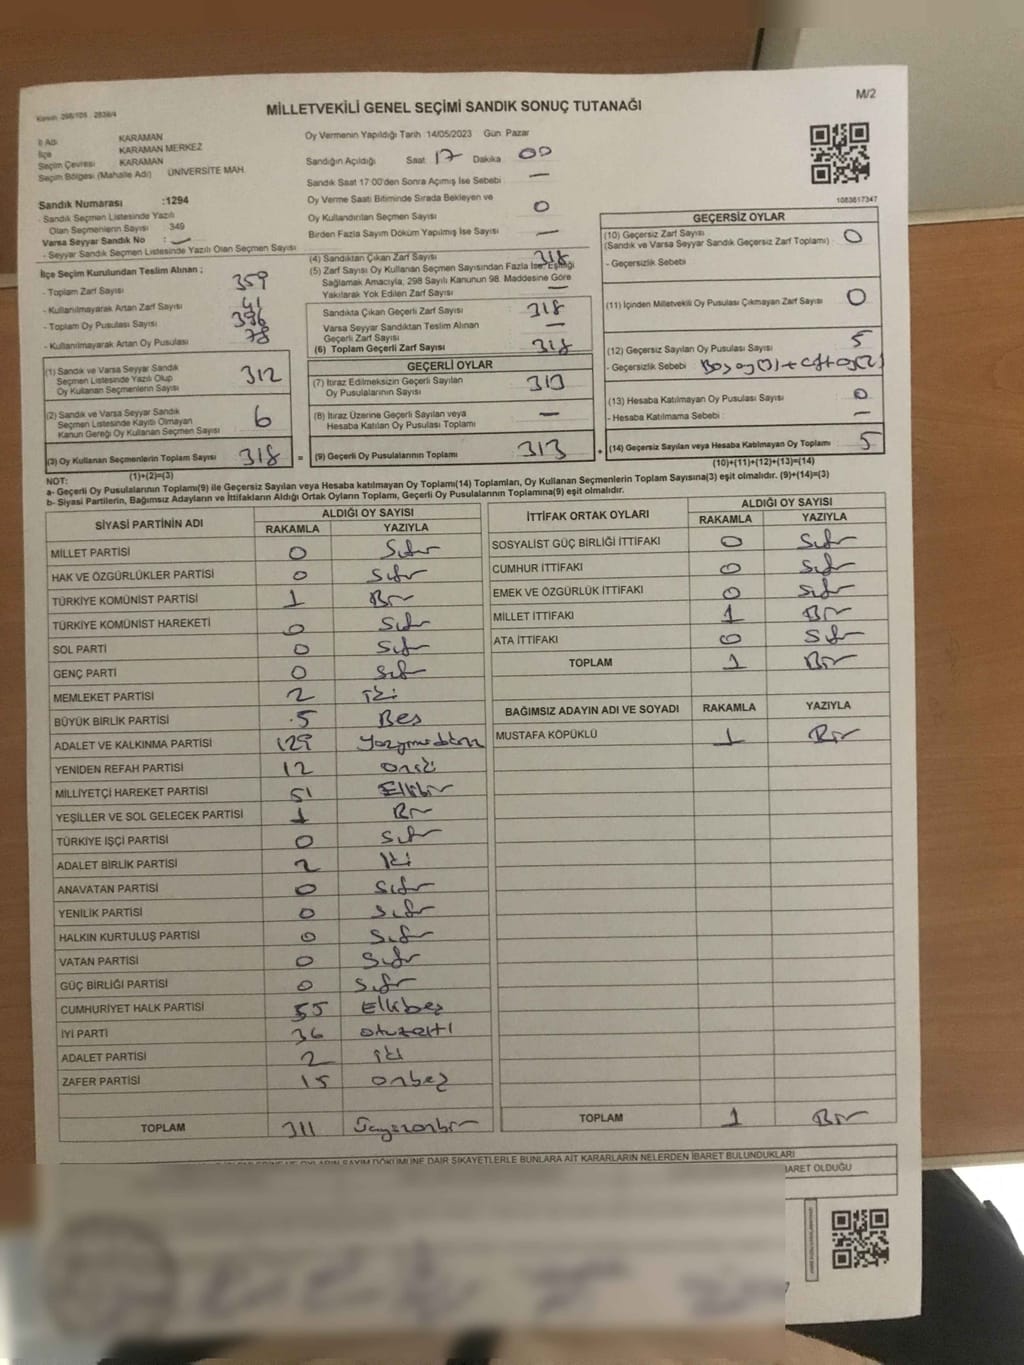 M/2
Kanun: 298/105 - 2839/4
MİLLETVEKİLİ GENEL SEÇİMİ SANDIK SONUÇ TUTANAĞI
İl Adı KARAMAN
İlçe KARAMAN MERKEZ
Seçim Çevresi KARAMAN
Seçim Bölgesi (Mahalle Adı) ÜNİVERSİTE MAH.
Sandık Numarası :1294
- Sandık Seçmen Listesinde Yazılı
Olan Seçmenlerin Sayısı 349
Varsa Seyyar Sandık No : —
- Seyyar Sandık Seçmen Listesinde Yazılı Olan Seçmen Sayısı
Oy Vermenin Yapıldığı Tarih 14/05/2023 Gün Pazar
Sandığın Açıldığı Saat 17 Dakika 00
Sandık Saat 17:00'den Sonra Açımış İse Sebebi : —
Oy Verme Saati Bitiminde Sırada Bekleyen ve
Oy Kullandırılan Seçmen Sayısı 0
Birden Fazla Sayım Döküm Yapılmış İse Sayısı —
1083817347
İlçe Seçim Kurulundan Teslim Alınan ;
- Toplam Zarf Sayısı 359
- Kullanılmayarak Artan Zarf Sayısı 41
- Toplam Oy Pusulası Sayısı 396
- Kullanılmayarak Artan Oy Pusulası 78
(1) Sandık ve Varsa Seyyar Sandık
Seçmen Listesinde Yazılı Olup
Oy Kullanan Seçmenlerin Sayısı 312
(2) Sandık ve Varsa Seyyar Sandık
Seçmen Listesinde Kayıtlı Olmayan
Kanun Gereği Oy Kullanan Seçmen Sayısı 6
(3) Oy Kullanan Seçmenlerin Toplam Sayısı 318 =
(1)+(2)=(3)
(4) Sandıktan Çıkan Zarf Sayısı 318
(5) Zarf Sayısı Oy Kullanan Seçmen Sayısından Fazla İse, Eşitliği
Sağlamak Amacıyla, 298 Sayılı Kanunun 98. Maddesine Göre
Yakılarak Yok Edilen Zarf Sayısı —
Sandıkta Çıkan Geçerli Zarf Sayısı 318
Varsa Seyyar Sandıktan Teslim Alınan
Geçerli Zarf Sayısı —
(6) Toplam Geçerli Zarf Sayısı 318
GEÇERLİ OYLAR
(7) İtiraz Edilmeksizin Geçerli Sayılan
Oy Pusulalarının Sayısı 313
(8) İtiraz Üzerine Geçerli Sayılan veya
Hesaba Katılan Oy Pusulası Toplamı —
(9) Geçerli Oy Pusulalarının Toplamı 313 +
GEÇERSİZ OYLAR
(10) Geçersiz Zarf Sayısı
(Sandık ve Varsa Seyyar Sandık Geçersiz Zarf Toplamı) 0
- Geçersizlik Sebebi
(11) İçinden Milletvekili Oy Pusulası Çıkmayan Zarf Sayısı 0
(12) Geçersiz Sayılan Oy Pusulası Sayısı 5
- Geçersizlik Sebebi
(13) Hesaba Katılmayan Oy Pusulası Sayısı 0
- Hesaba Katılmama Sebebi : —
(14) Geçersiz Sayılan veya Hesaba Katılmayan Oy Toplamı 5
(10)+(11)+(12)+(13)=(14)
NOT:
a- Geçerli Oy Pusulalarının Toplamı(9) ile Geçersiz Sayılan veya Hesaba katılmayan Oy Toplamı(14) Toplamları, Oy Kullanan Seçmenlerin Toplam Sayısına(3) eşit olmalıdır. (9)+(14)=(3)
b- Siyasi Partilerin, Bağımsız Adayların ve İttifakların Aldığı Ortak Oyların Toplamı, Geçerli Oy Pusulalarının Toplamına(9) eşit olmalıdır.
SİYASİ PARTİNİN ADI ALDIĞI OY SAYISI
RAKAMLA YAZIYLA
MİLLET PARTİSİ 0 Sıfır
HAK VE ÖZGÜRLÜKLER PARTİSİ 0 Sıfır
TÜRKİYE KOMÜNİST PARTİSİ 1 Bir
TÜRKİYE KOMÜNİST HAREKETİ 0 Sıfır
SOL PARTİ 0 Sıfır
GENÇ PARTİ 0 Sıfır
MEMLEKET PARTİSİ 2 iki
BÜYÜK BİRLİK PARTİSİ 5 Beş
ADALET VE KALKINMA PARTİSİ 129
YENİDEN REFAH PARTİSİ 12 oniki
MİLLİYETÇİ HAREKET PARTİSİ 51 Ellibir
YEŞİLLER VE SOL GELECEK PARTİSİ 1 Bir
TÜRKİYE İŞÇİ PARTİSİ 0 Sıfır
ADALET BİRLİK PARTİSİ 2 iki
ANAVATAN PARTİSİ 0 Sıfır
YENİLİK PARTİSİ 0 Sıfır
HALKIN KURTULUŞ PARTİSİ 0 Sıfır
VATAN PARTİSİ 0 Sıfır
GÜÇ BİRLİĞİ PARTİSİ 0 Sıfır
CUMHURİYET HALK PARTİSİ 55 Ellibeş
İYİ PARTİ 36 otuzaltı
ADALET PARTİSİ 2 iki
ZAFER PARTİSİ 15 onbeş
TOPLAM 311 Üçyüzonbir
İTTİFAK ORTAK OYLARI ALDIĞI OY SAYISI
RAKAMLA YAZIYLA
SOSYALİST GÜÇ BİRLİĞİ İTTİFAKI 0 Sıfır
CUMHUR İTTİFAKI 0 Sıfır
EMEK VE ÖZGÜRLÜK İTTİFAKI 0 Sıfır
MİLLET İTTİFAKI 1 Bir
ATA İTTİFAKI 0 Sıfır
TOPLAM 1 Bir
BAĞIMSIZ ADAYIN ADI VE SOYADI RAKAMLA YAZIYLA
MUSTAFA KÖPÜKLÜ 1 Bir
TOPLAM 1 Bir
OYLARIN SAYIM DÖKÜMÜNE DAİR ŞİKAYETLERLE BUNLARA AİT KARARLARIN NELERDEN İBARET BULUNDUKLARI
BARET OLDUĞU